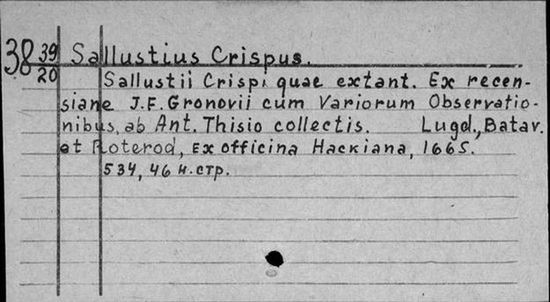 38 39 Sallustius Crispus.
20 Sallustii Crispi quae extant. Ex recen-
siane J.F. Gronovii cum Variorum Observatio-
nibus, ab Ant. Thisio collectis. Lugd., Batav.
et Roterod, ex officina Hackiana, 1665.
534, 46 н.стр.